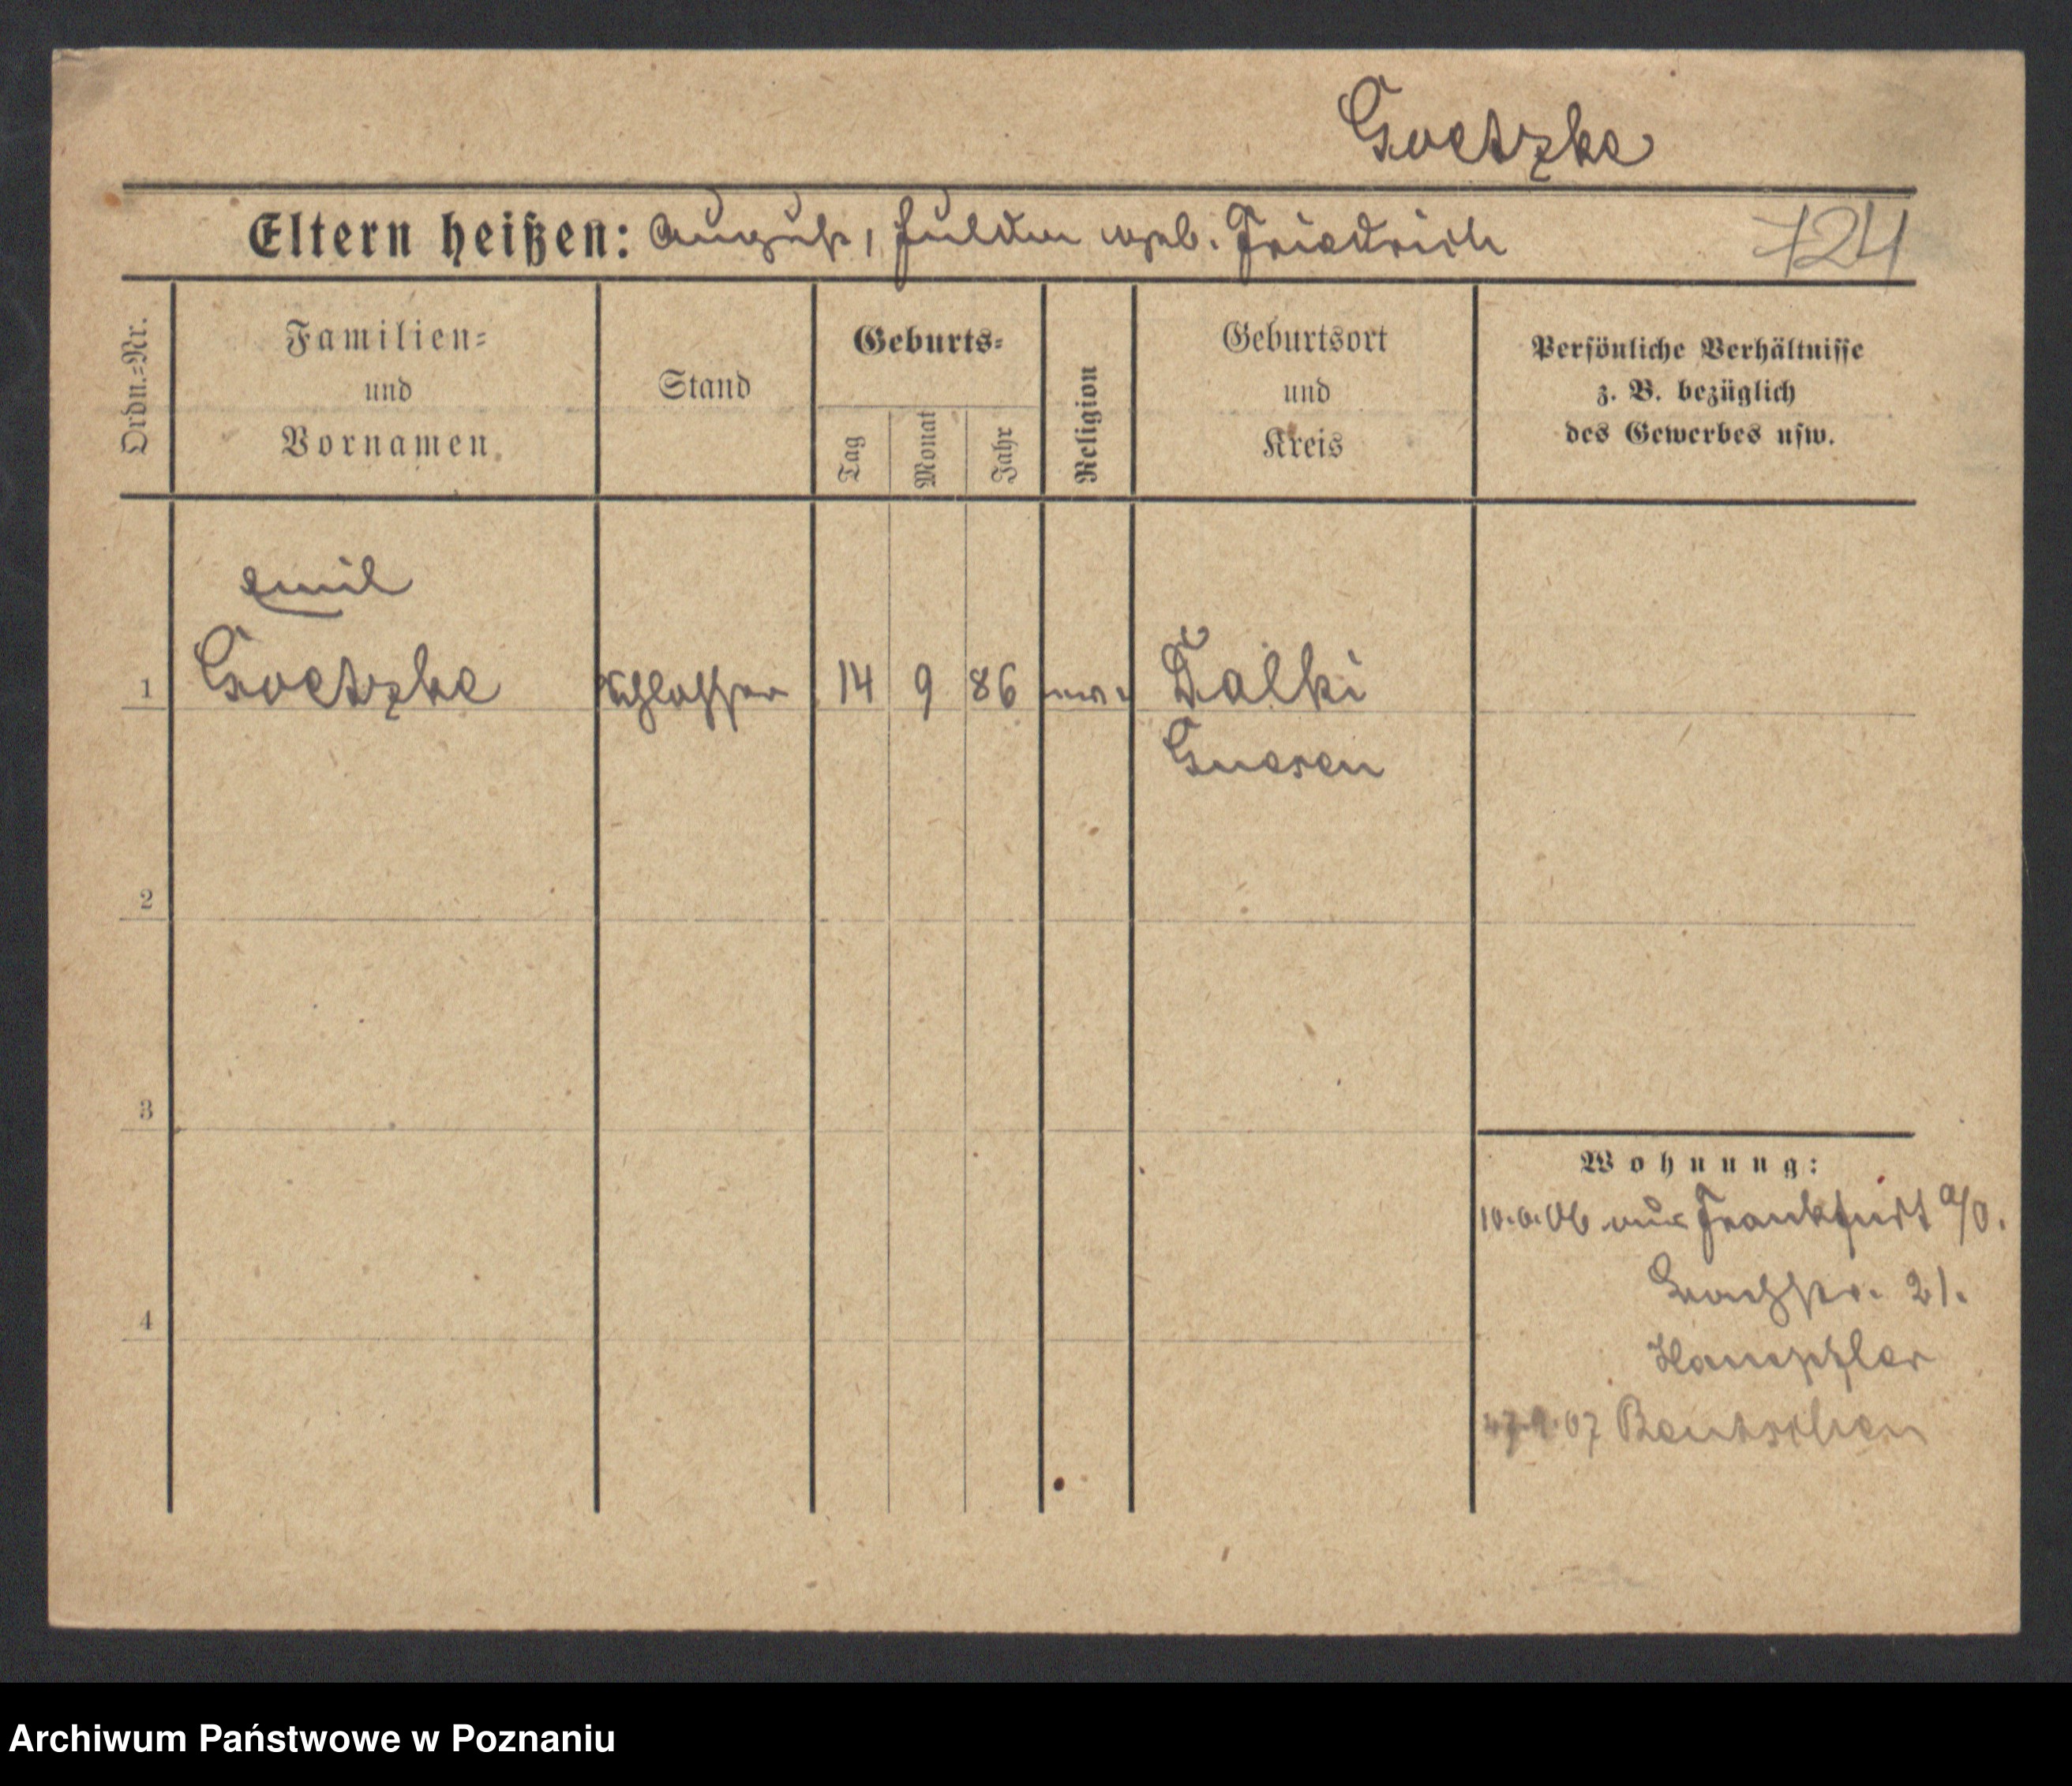 Goetzke
Eltern heißen: August, Hulda geb. Friedrich
724
Ordn.-Nr.
Familien-
und
Vornamen
Stand
Geburts-
Tag
Monat
Jahr
Religion
Geburtsort
und
Kreis
Persönliche Verhältnisse
z. B. bezüglich
des Gewerbes usw.
Emil
1 Goetzke Schlosser 14 9 86 ev. Dalki
Gnesen
2
3
4
Wohnung:
06 aus Frankfurt a/O.
21.
07 Bentschen
Archiwum Państwowe w Poznaniu